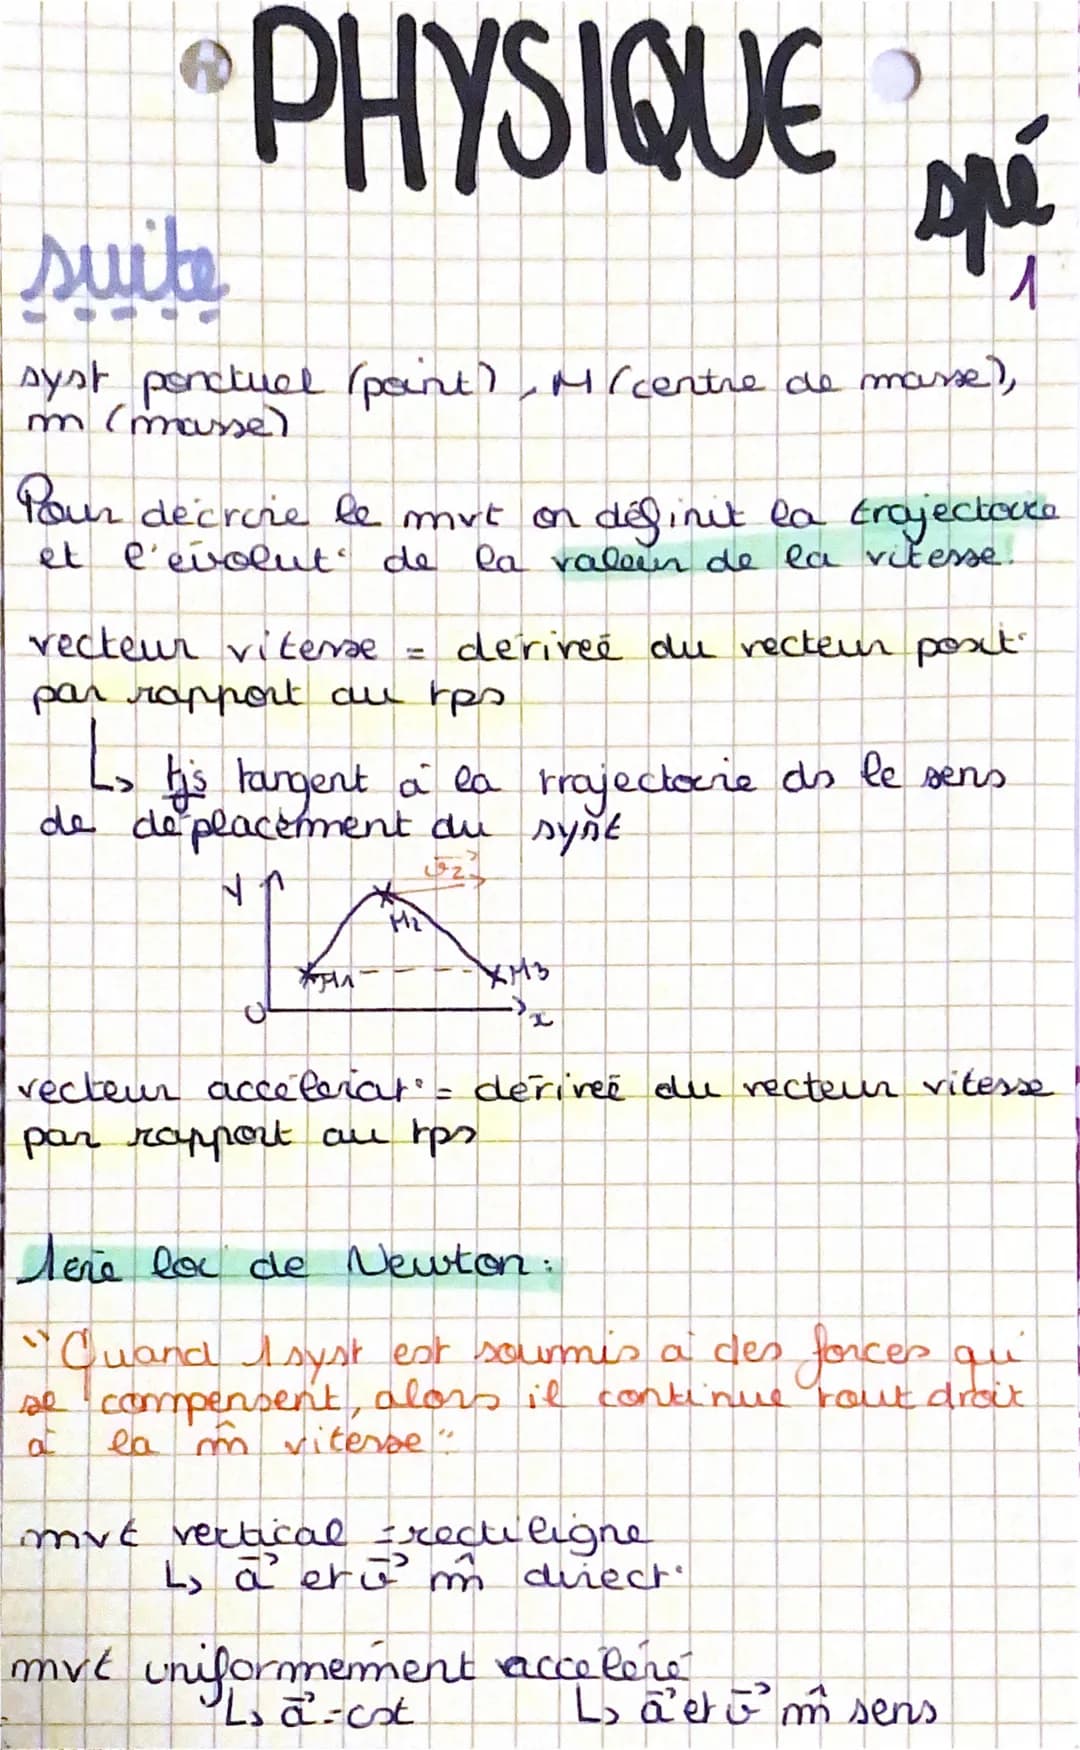 PHYSIQUE
spé
1
suite
syst ponctuel (point), M (centre de masse),
m (masse)
Pour décrire le mvt on définit la trajectoire
et l'évolut° de la valeur de la vitesse.
vecteur vitesse = dérivée du vecteur posit°
par rapport au tps
↳ tjs tangent à la trajectoire ds le sens
de déplacement du syst
y
v2
M2
M1
M3
O
x
vecteur accélérat° = dérivée du vecteur vitesse
par rapport au tps
1ère loi de Newton :
"Quand 1 syst est soumis à des forces qui
se compensent, alors il continue tout droit
à la m̂ vitesse"
mvt vertical = rectiligne
↳ a⃗ et v⃗ m̂ direct°
mvt uniformément accéléré
↳ a⃗ = cst ↳ a⃗ et v⃗ m̂ sens